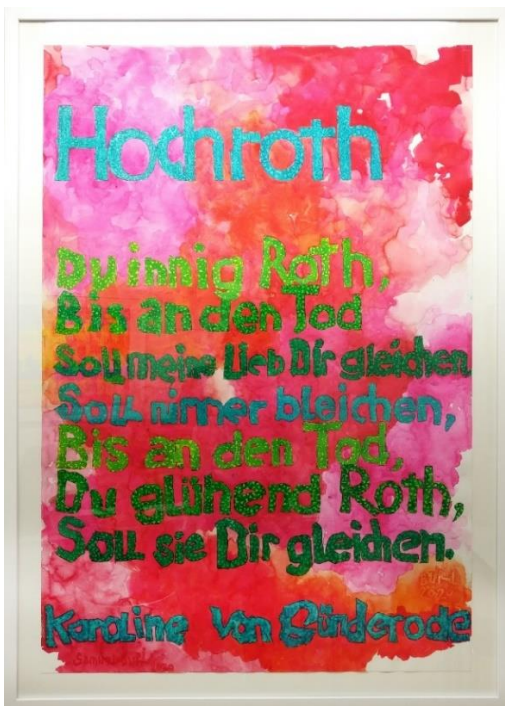 Hochroth
Du innig Roth,
Bis an den Tod
Soll meine Lieb Dir gleichen
Soll nimer bleichen,
Bis an den Tod,
Du glühend Roth,
Soll sie Dir gleichen.
Karoline von Günderode